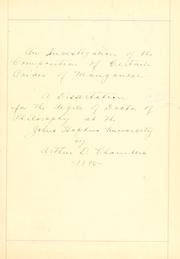 An Investigation of the
Composition of Certain
Oxides of Manganese
A Dissertation
for the degree of Doctor of
Philosophy at the
Johns Hopkins University
by
Arthur D. Chambers
-1890-